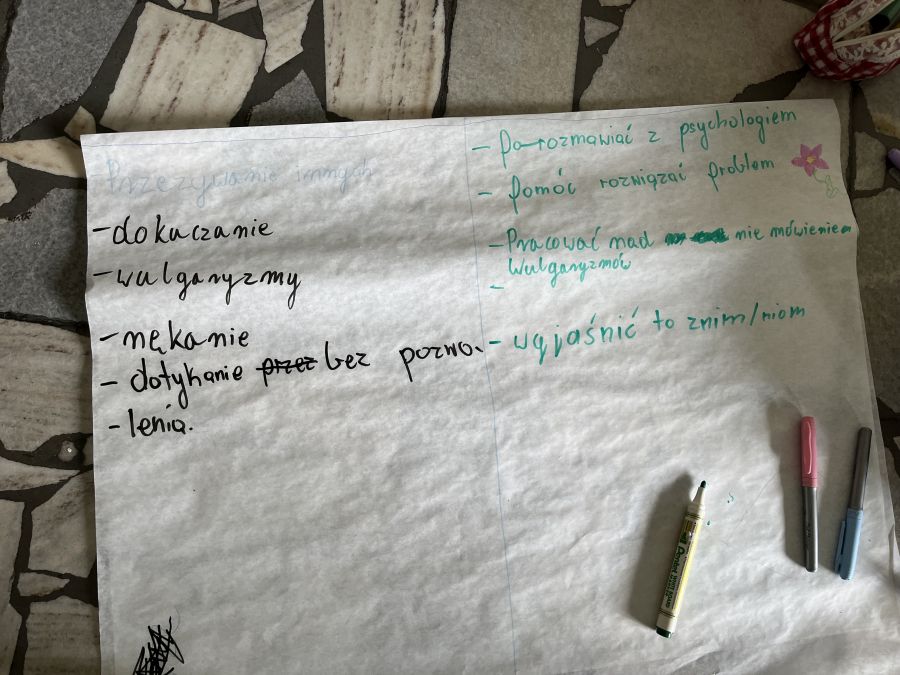 - Przezywanie innych
- dokuczanie
- wulgaryzmy
- nękanie
- dotykanie przez bez pozwo-
- lenia.
- Po-rozmawiać z psychologiem
- Pomóc rozwiązać problem
- Pracować nad nie mówieniem
wulgaryzmów
-
- wyjaśnić to znim/niom